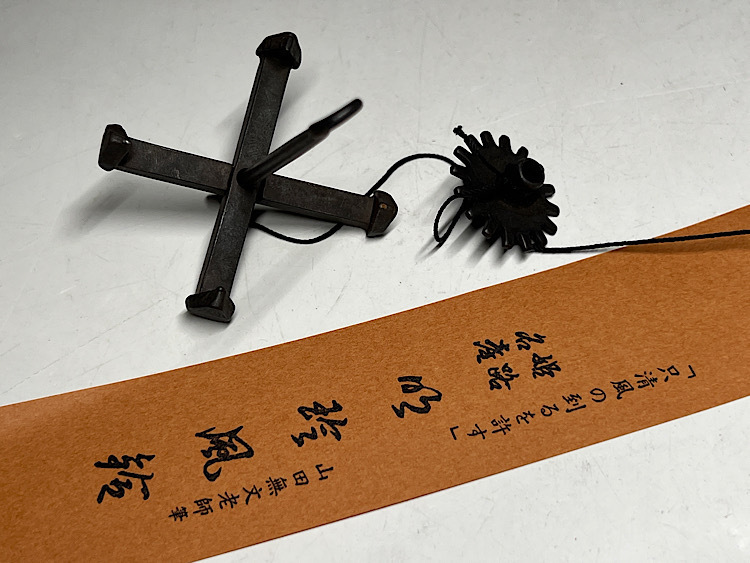 「只清風の到るを許す」
姫路
名産
明珍風鈴
山田無文老師筆